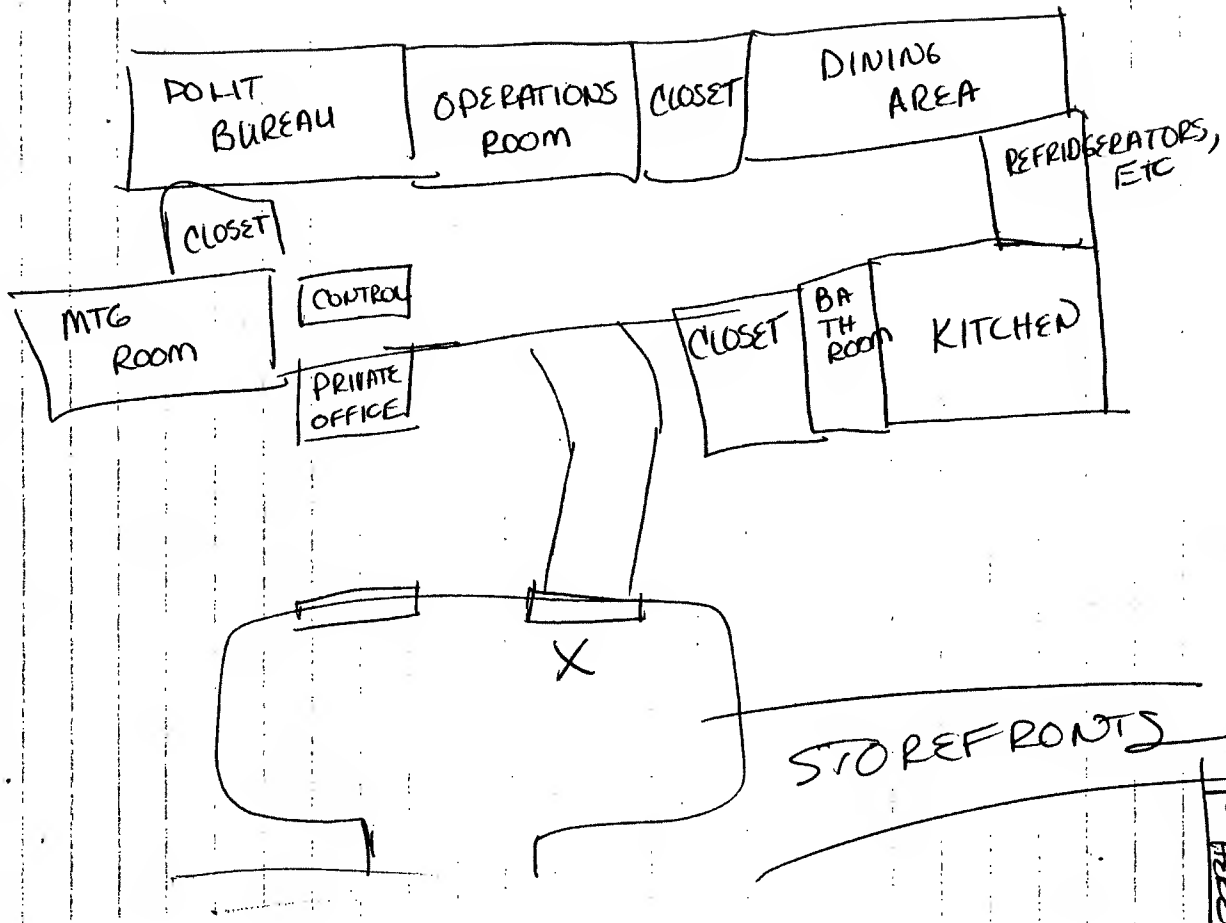 POLIT
BUREAU
OPERATIONS
ROOM
CLOSET
DINING
AREA
REFRIDGERATORS,
ETC
CLOSET
MTG
ROOM
CONTROL
PRIVATE
OFFICE
CLOSET
BA
TH
ROOM
KITCHEN
X
STOREFRONTS